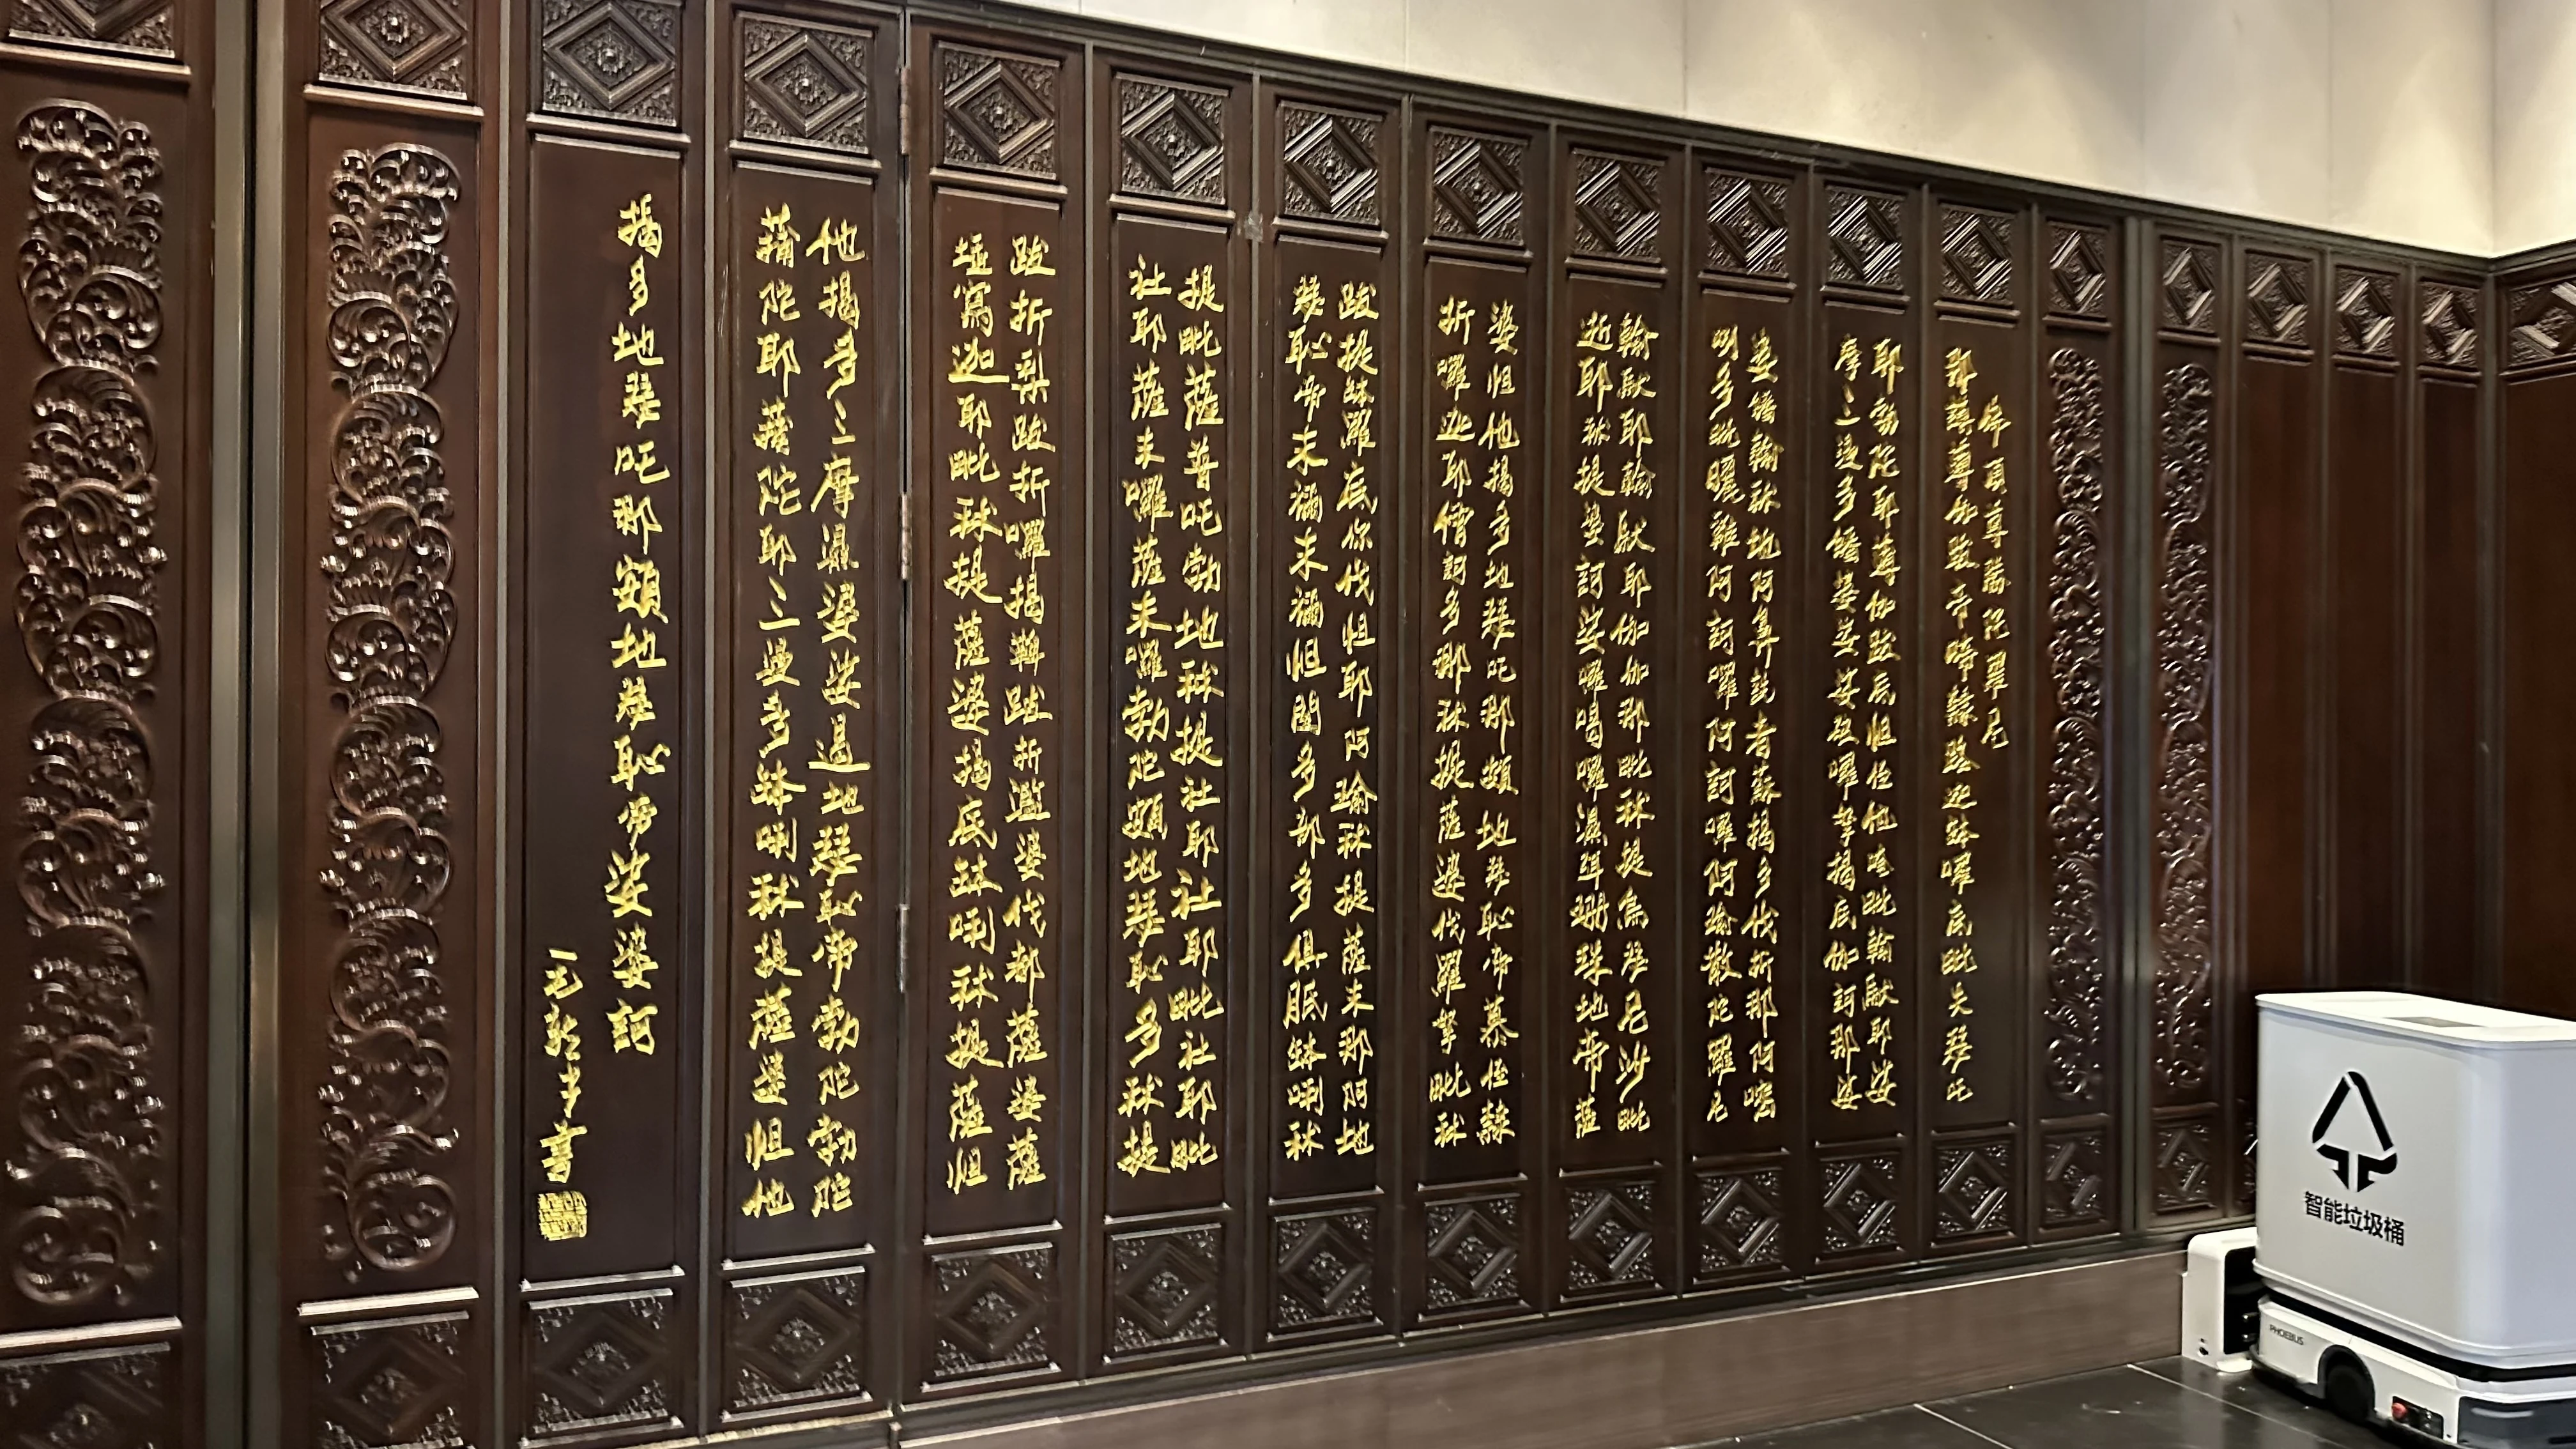 佛頂尊勝陀羅尼
那謨薄伽跋帝啼隸路迦鉢囉底毗失瑟吒
耶勃陀耶薄伽跋底怛侄他唵毗輸馱耶娑
摩三漫多皤婆娑娑破囉拏揭底伽訶那娑
婆皤輸秫地阿鼻詵者蘇揭多伐折那阿嘧
唎多毗曬雞阿訶囉阿訶囉阿瑜散陀羅尼
輸馱耶輸馱耶伽伽那毗秫提烏瑟尼沙毗
逝耶秫提娑訶娑囉喝囉濕弭珊珠地帝薩
婆怛他揭多地瑟吒那頞地瑟恥帝慕侄隸
折囉迦耶僧訶多那秫提薩婆伐羅拏毗秫
跋提鉢羅底你伐怛耶阿瑜秫提薩末那阿地
瑟恥帝末禰末禰怛闥多部多俱胝鉢唎秫
提毗薩普吒勃地秫提社耶社耶毗社耶毗
社耶薩末囉薩末囉勃陀頞地瑟恥多秫提
跋折梨跋折囉揭鞞跋折濫婆伐都薩婆薩
埵寫迦耶毗秫提薩婆揭底鉢唎秫提薩怛
他揭多三摩濕婆娑遏地瑟恥帝勃陀勃陀
蒱陀耶蒱陀耶三漫多鉢唎秫提薩婆怛他
揭多地瑟吒那頞地瑟恥帝娑婆訶
書
智能垃圾桶
PHOEBUS